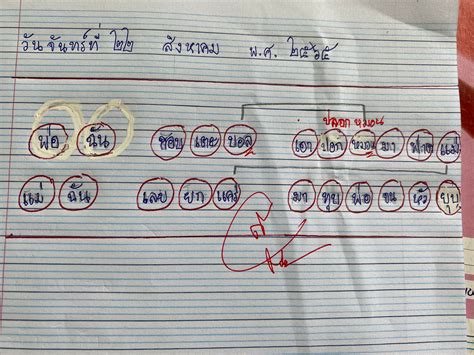 วันจันทร์ที่ ๒๒ สิงหาคม พ.ศ. ๒๕๖๕
ปลอก หมอน
พ่อ ฉัน ชอบ เตะ บอล เอา ปอก หมอน มา ฟาด แม่
แม่ ฉัน เลย ยก แคร่ มา ทุบ พ่อ จน หัว ยุบ